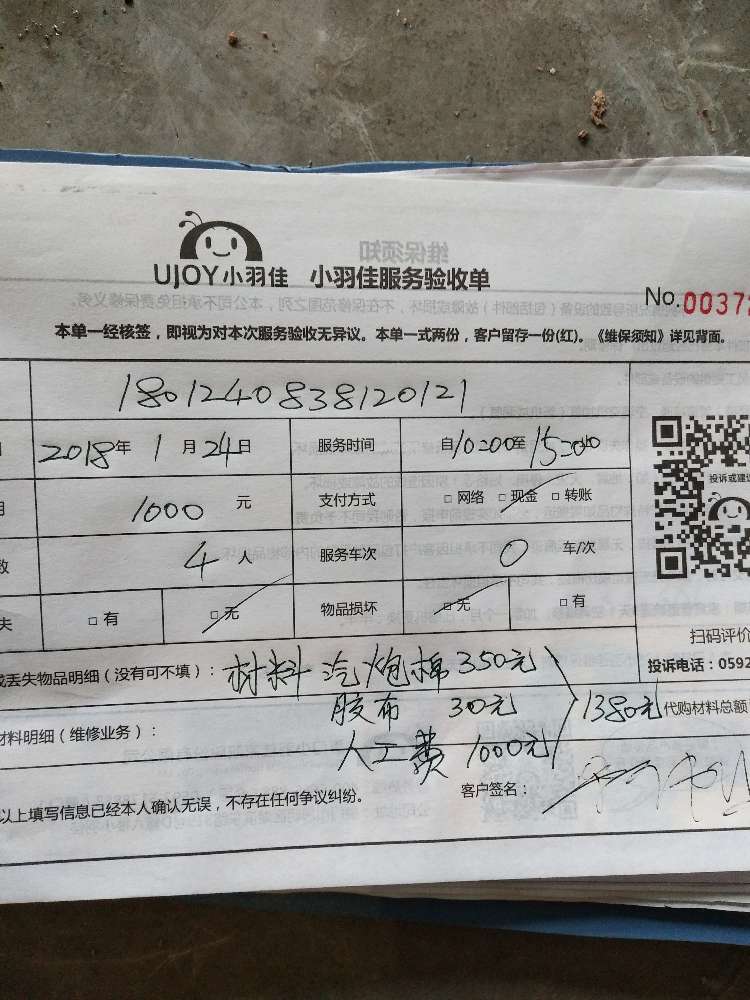 UJOY小羽佳 小羽佳服务验收单
No.0037
本单一经核签，即视为对本次服务验收无异议。本单一式两份，客户留存一份(红)。《维保须知》详见背面。
1801240838120121
2018年 1月 24日 服务时间 自10:00至15:00
1000 元 支付方式 □网络 □现金 □转账
投诉或建
数 4 人 服务车次 0 车/次
失 □有 □无 物品损坏 □无 □有
扫码评价
或丢失物品明细（没有可不填）： 材料 汽炮棉 350元
投诉电话：0592
胶布 30元 1380元 代购材料总额
材料明细（维修业务）：
人工费 1000元
以上填写信息已经本人确认无误，不存在任何争议纠纷。 客户签名：
维保须知